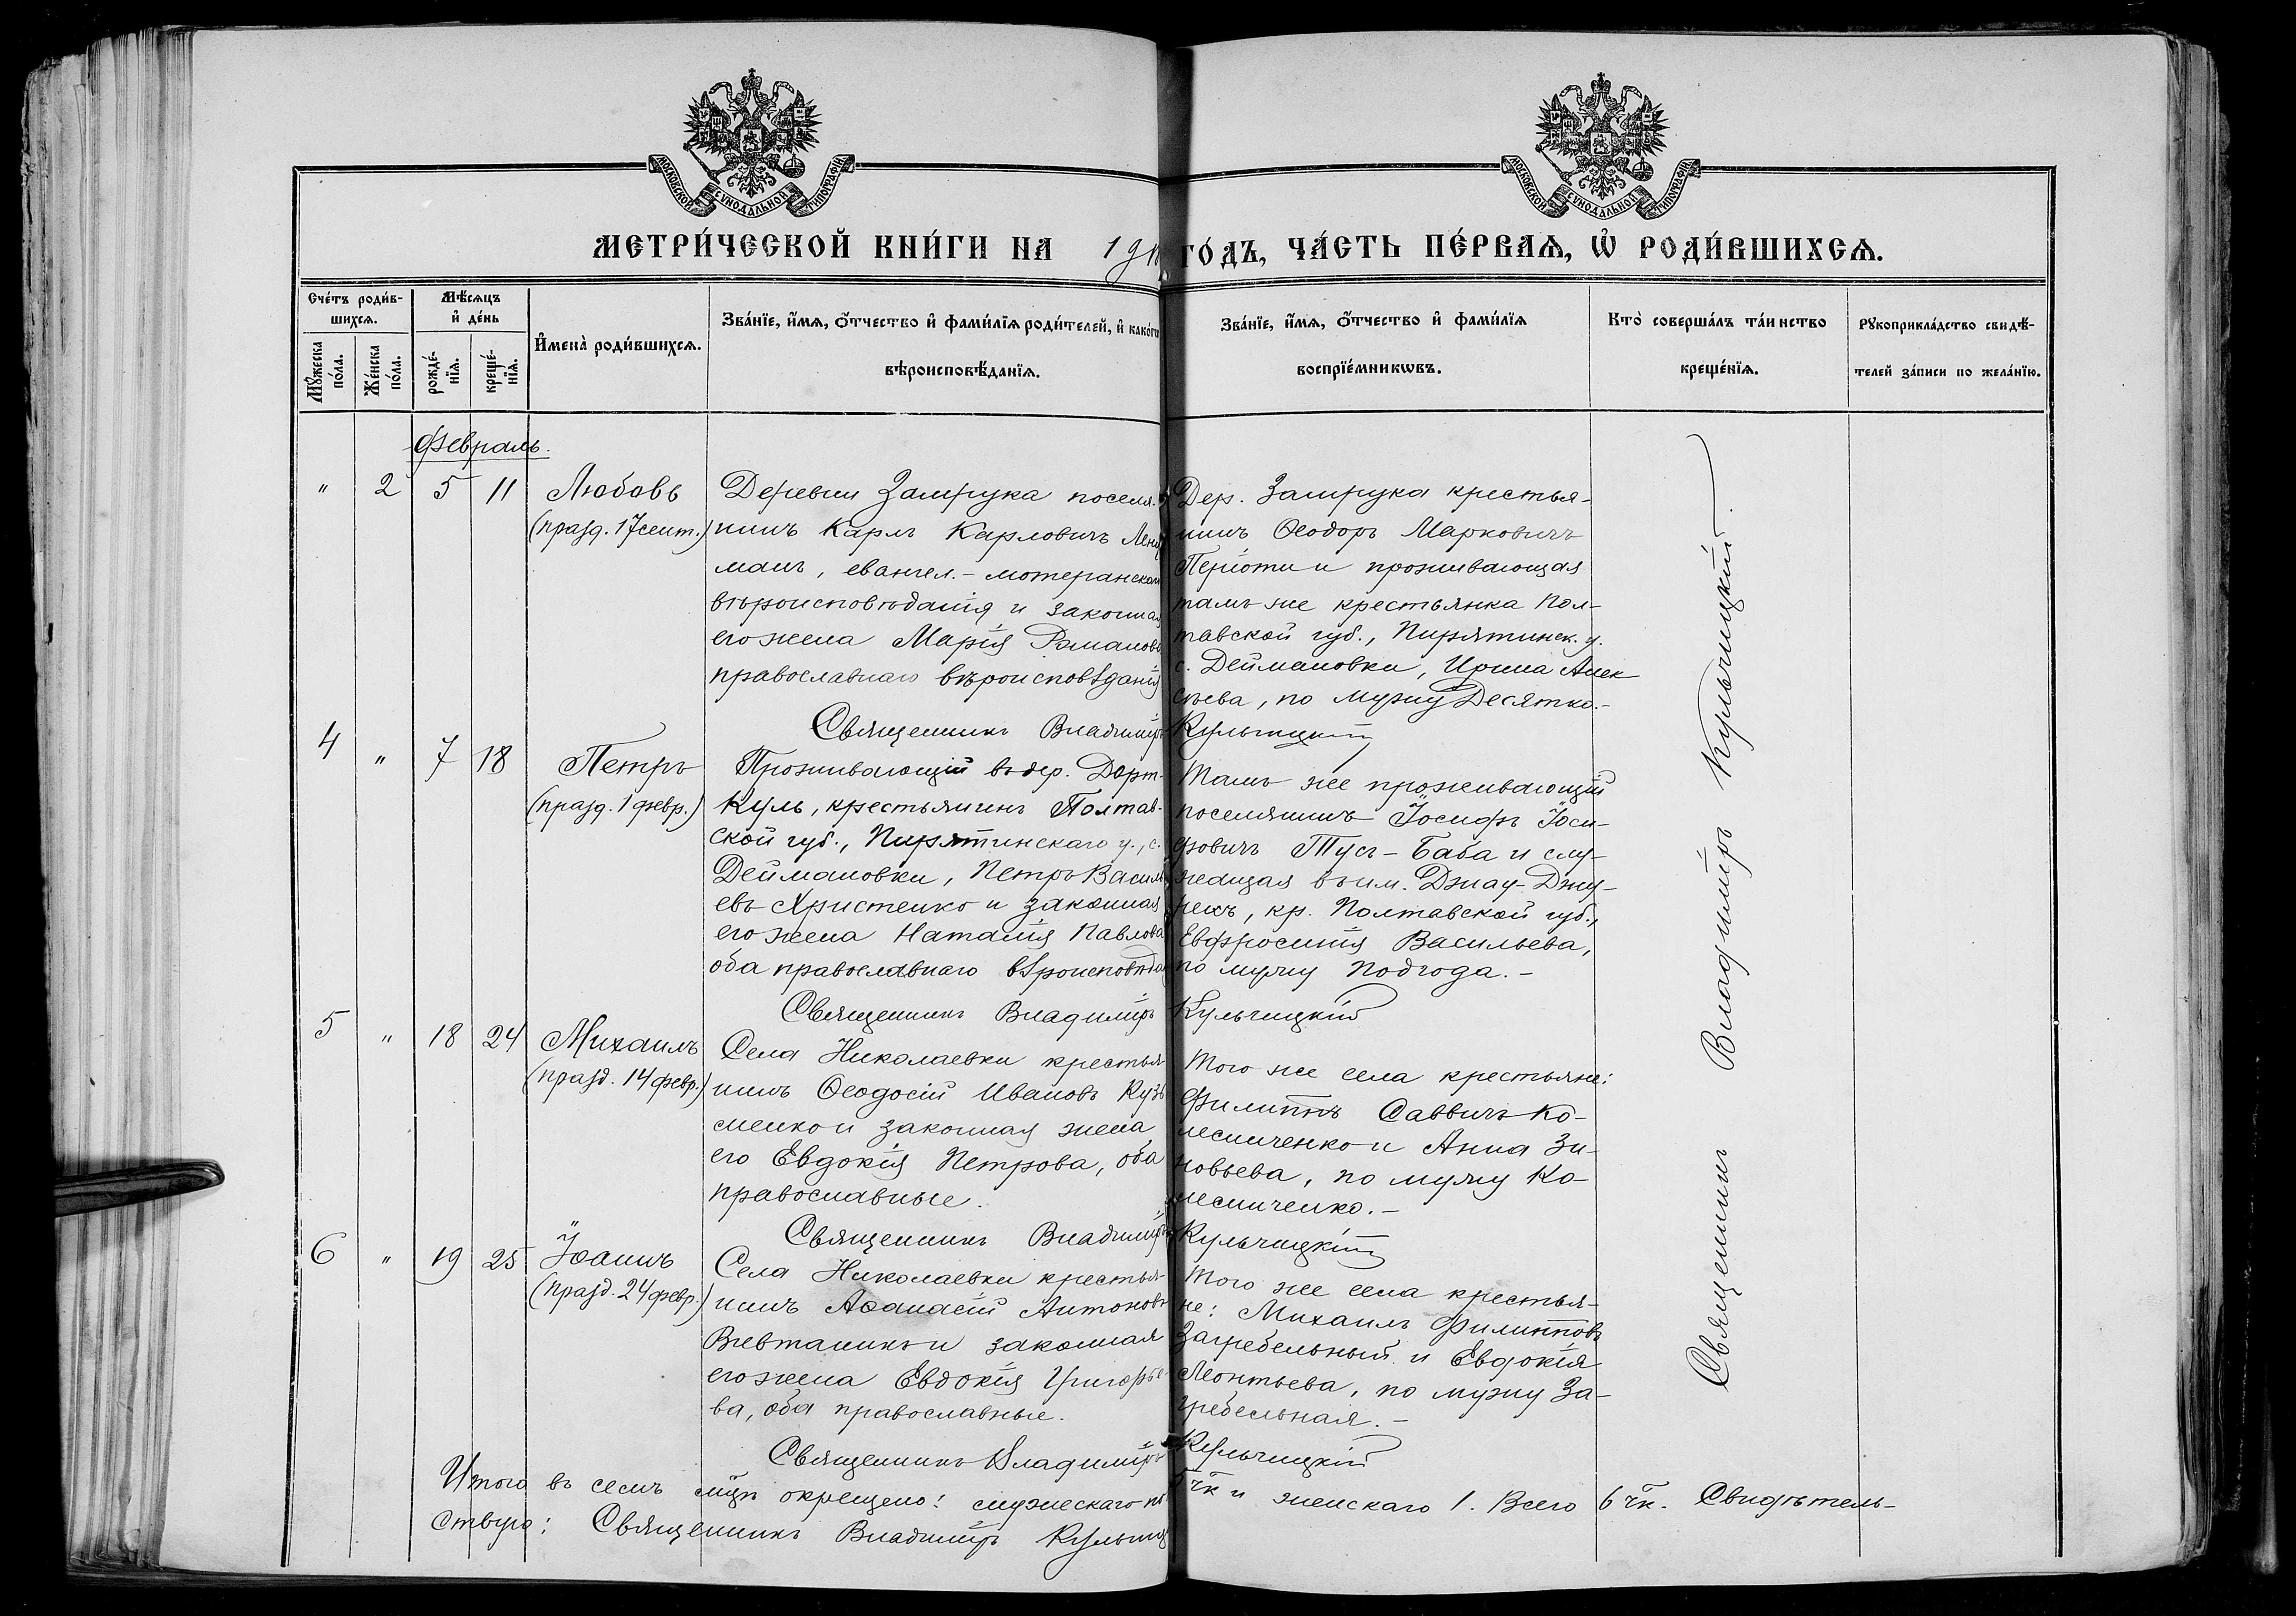 МОСКОВСКОЙ СѴНОДАЛЬНОЙ ТИПОГРАФІИ
МОСКОВСКОЙ СѴНОДАЛЬНОЙ ТИПОГРАФІИ
МЕТРИ́ЧЕСКОЙ КНИ́ГИ НА 19 ГО́ДЪ, ЧА́СТЬ ПЕ́РВАѦ, Ѡ҆ РОДИ́ВШИХСѦ.
Сче́тъ роди́в-
шихсѧ.
Мꙋ́жеска
по́ла.
Же́нска
по́ла.
Мѣ́сѧцъ
и҆ де́нь
рожде́-
нїѧ.
креще́-
нїѧ.
И҆мена̀ роди́вшихсѧ.
Зва́нїе, и҆́мѧ, ѻ҆́тчество и҆ фами́лїѧ роди́телей, и҆ како́гѡ
вѣроисповѣ́данїѧ.
Зва́нїе, и҆́мѧ, ѻ҆́тчество и҆ фами́лїѧ
воспрїе́мникѡвъ.
Кто̀ соверша́лъ та́инство
креще́нїѧ.
Рꙋкоприкла́дство свидѣ́-
телей за́писи по жела́нїю.
Февраль.
" 2 5 11 Любовь
(празд. 17 сент.)
Деревни Замрука поселя-
нинъ Карлъ Карловичъ
манъ, евангел.-лютеранскаго
вѣроисповѣданія и законная
его жена Марія Романова
православнаго вѣроисповѣданія
Дер. Замрука крестья-
нинъ Ѳеодоръ Марковичъ
и проживающая
тамъ же крестьянка Пол-
тавской губ., Пирятинск. у.
с. Деймановки, Ирина Алек-
сѣева, по мужу Десятко.-
Священникъ Владиміръ Кульчицкій
4 " 7 18 Петръ
(празд. 1 февр.)
Проживающій въ дер. Дорт-
Куль, крестьянинъ Полтав-
ской губ., Пирятинскаго у., с.
Деймановки, Петръ Василь-
евъ Христенко и законная
его жена Наталія Павлова
оба православнаго вѣроисповѣдан
Тамъ же проживающій
поселянинъ Іосифъ Іоси-
фовичъ Тусъ-Баба и слу-
жащая въ им. Джау-Джу-
рекъ, кр. Полтавской губ.,
Евфросинія Васильева,
по мужу Подгода.-
Священникъ Владиміръ Кульчицкій
5 " 18 24 Михаилъ
(празд. 14 февр.)
Села Николаевки крестья-
нинъ Ѳеодосій Ивановъ Кузь
менко и законная жена
его Евдокія Петрова, оба
православные.
Того же села крестьяне:
Филиппъ Саввичъ Ко-
лесниченко и Анна Зи-
новьева, по мужу Ко-
лесниченко.-
Священникъ Владиміръ Кульчицкій
6 " 19 25 Іоаннъ
(празд. 24 февр.)
Села Николаевки крестья-
нинъ Аѳанасій Антоновъ
и законная
его жена Евдокія Григорье-
ва, оба православные.
Того же села крестья-
не: Михаилъ Филипповъ
Загребельный и Евдокія
Леонтьева, по мужу За-
гребельная.-
Священникъ Владиміръ Кульчицкій
Священникъ Владиміръ Кульчицкій.
Итого въ семъ мцѣ окрещено: мужескаго по 5 чк и женскаго 1. Всего 6 чк. Свидѣтель-
ствую: Священникъ Владиміръ Кульчиц